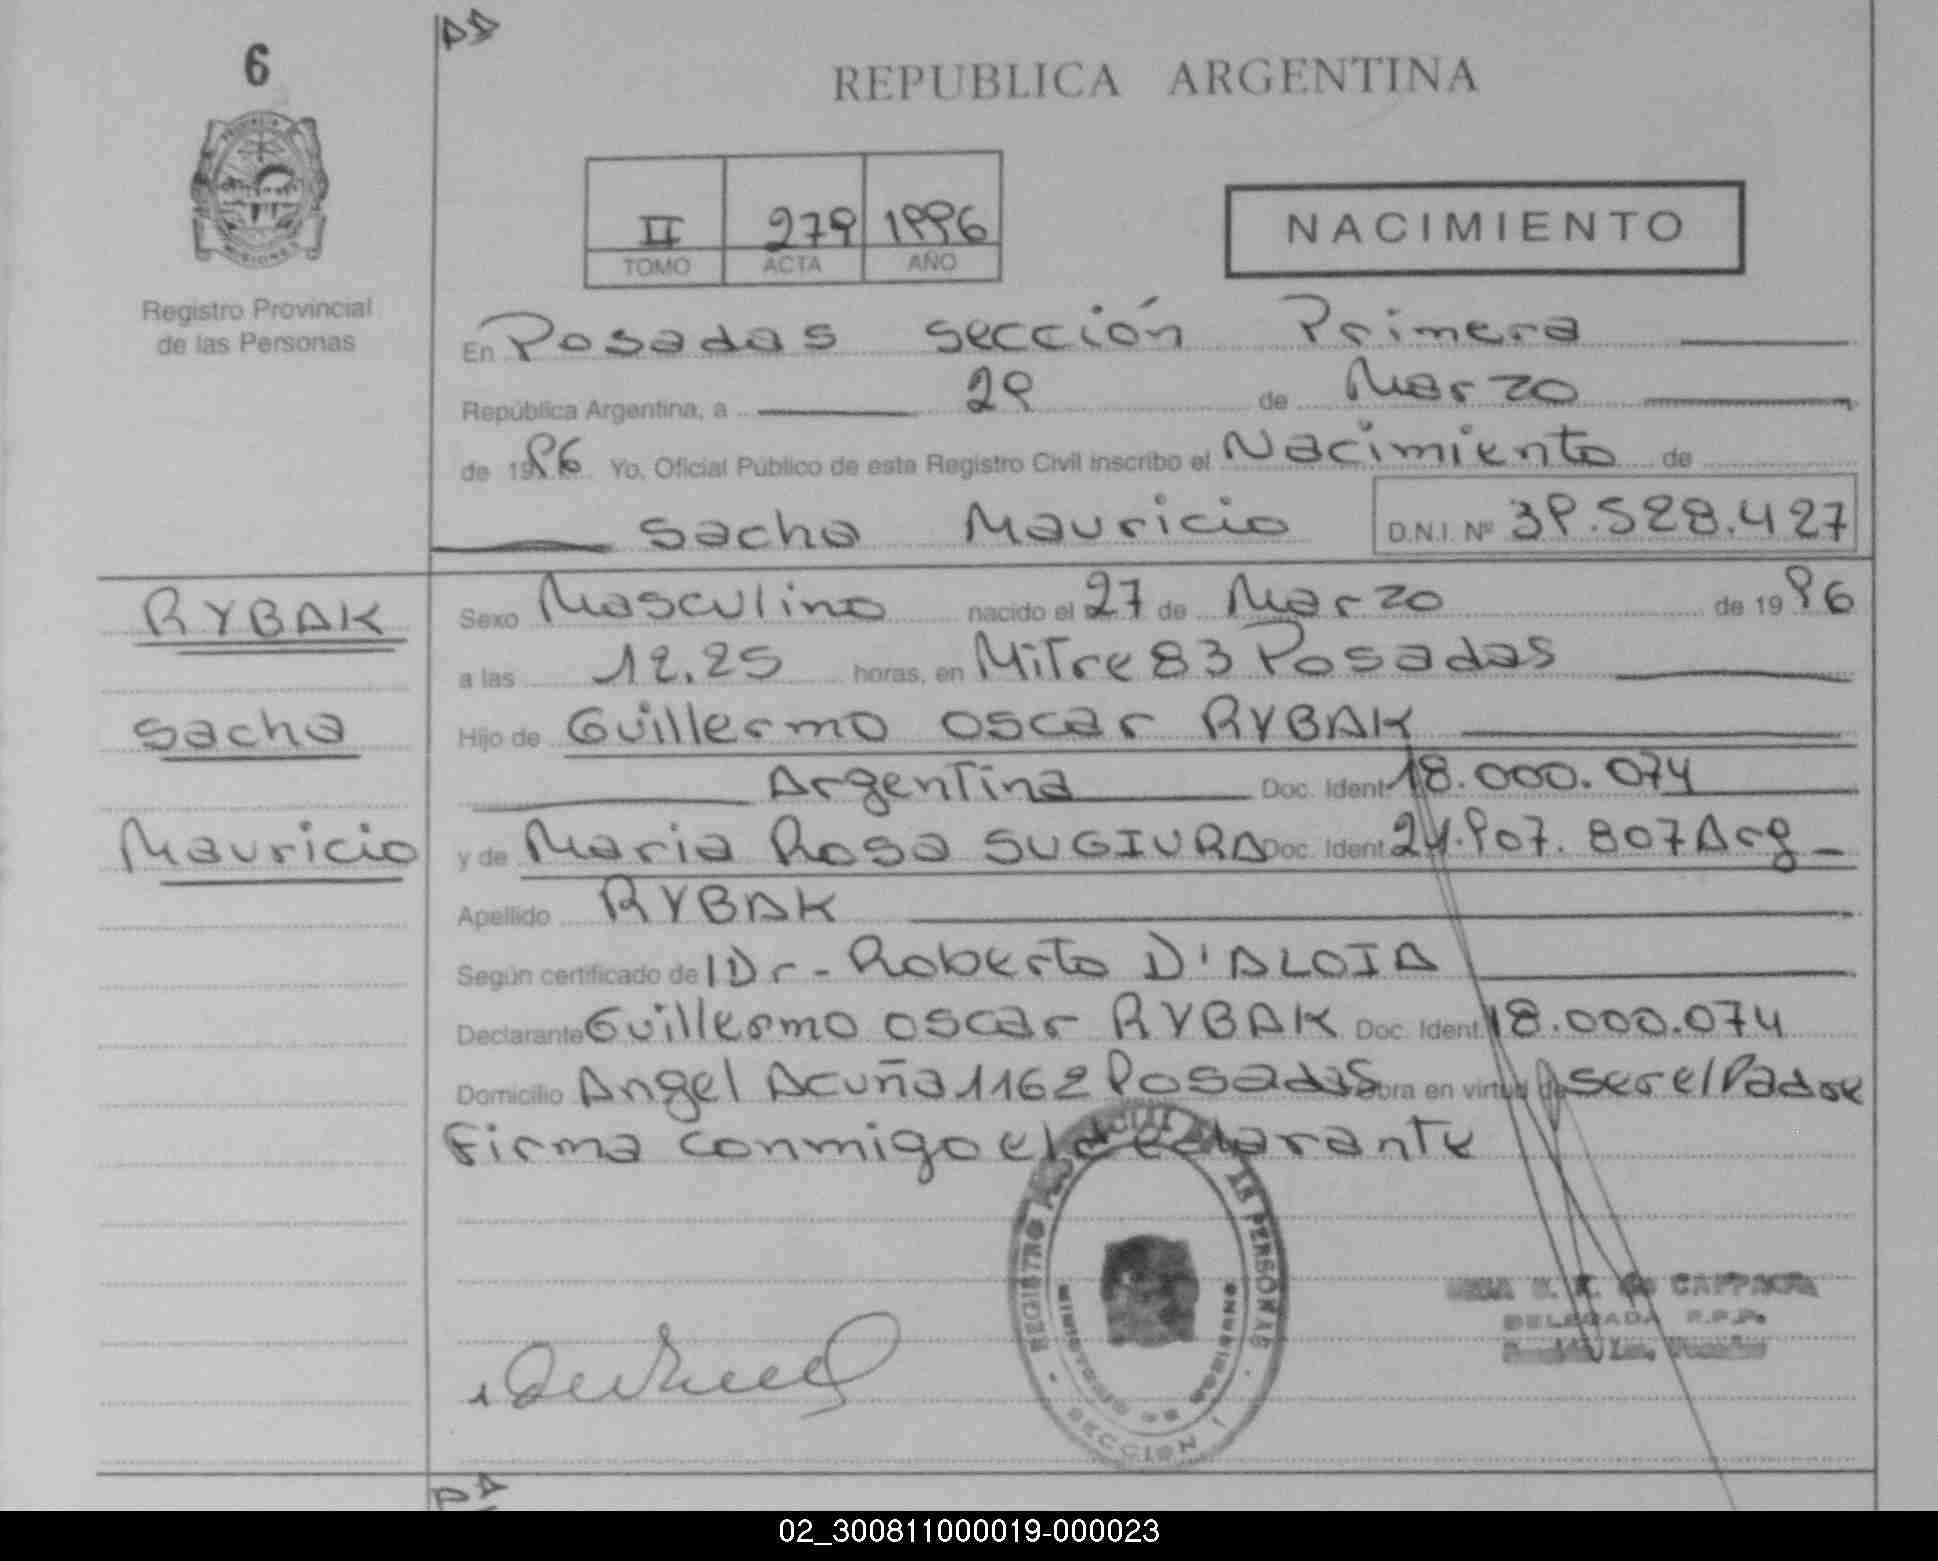 6
PROVINCIA
MISIONES
Registro Provincial
de las Personas
REPUBLICA ARGENTINA
II 279 1996
TOMO ACTA AÑO
NACIMIENTO
En Posadas sección Primera
República Argentina, a 29 de Marzo
de 1996 Yo, Oficial Público de este Registro Civil inscribo el Nacimiento de
Sacha Mauricio D.N.I. Nº 39.528.427
RYBAK
Sacha
Mauricio
Sexo Masculino nacido el 27 de Marzo de 1996
a las 12.25 horas, en Mitre 83 Posadas
Hijo de Guillermo Oscar RYBAK
Argentina Doc. Ident. 18.000.074
y de Maria Rosa SUGIURA Doc. Ident. 24.907.807 Arg
Apellido RYBAK
Según certificado de l Dr. Roberto D'ALOIA
Declarante Guillermo Oscar RYBAK Doc. Ident. 18.000.074
Domicilio Angel Acuña 1162 Posadas obra en virtud de ser el Padre
Firma conmigo el declarante
REGISTRO LAS PERSONAS
MINISTERIO DE GOBIERNO
SECCION 1
DELEGADA R.P.P.
02_300811000019-000023